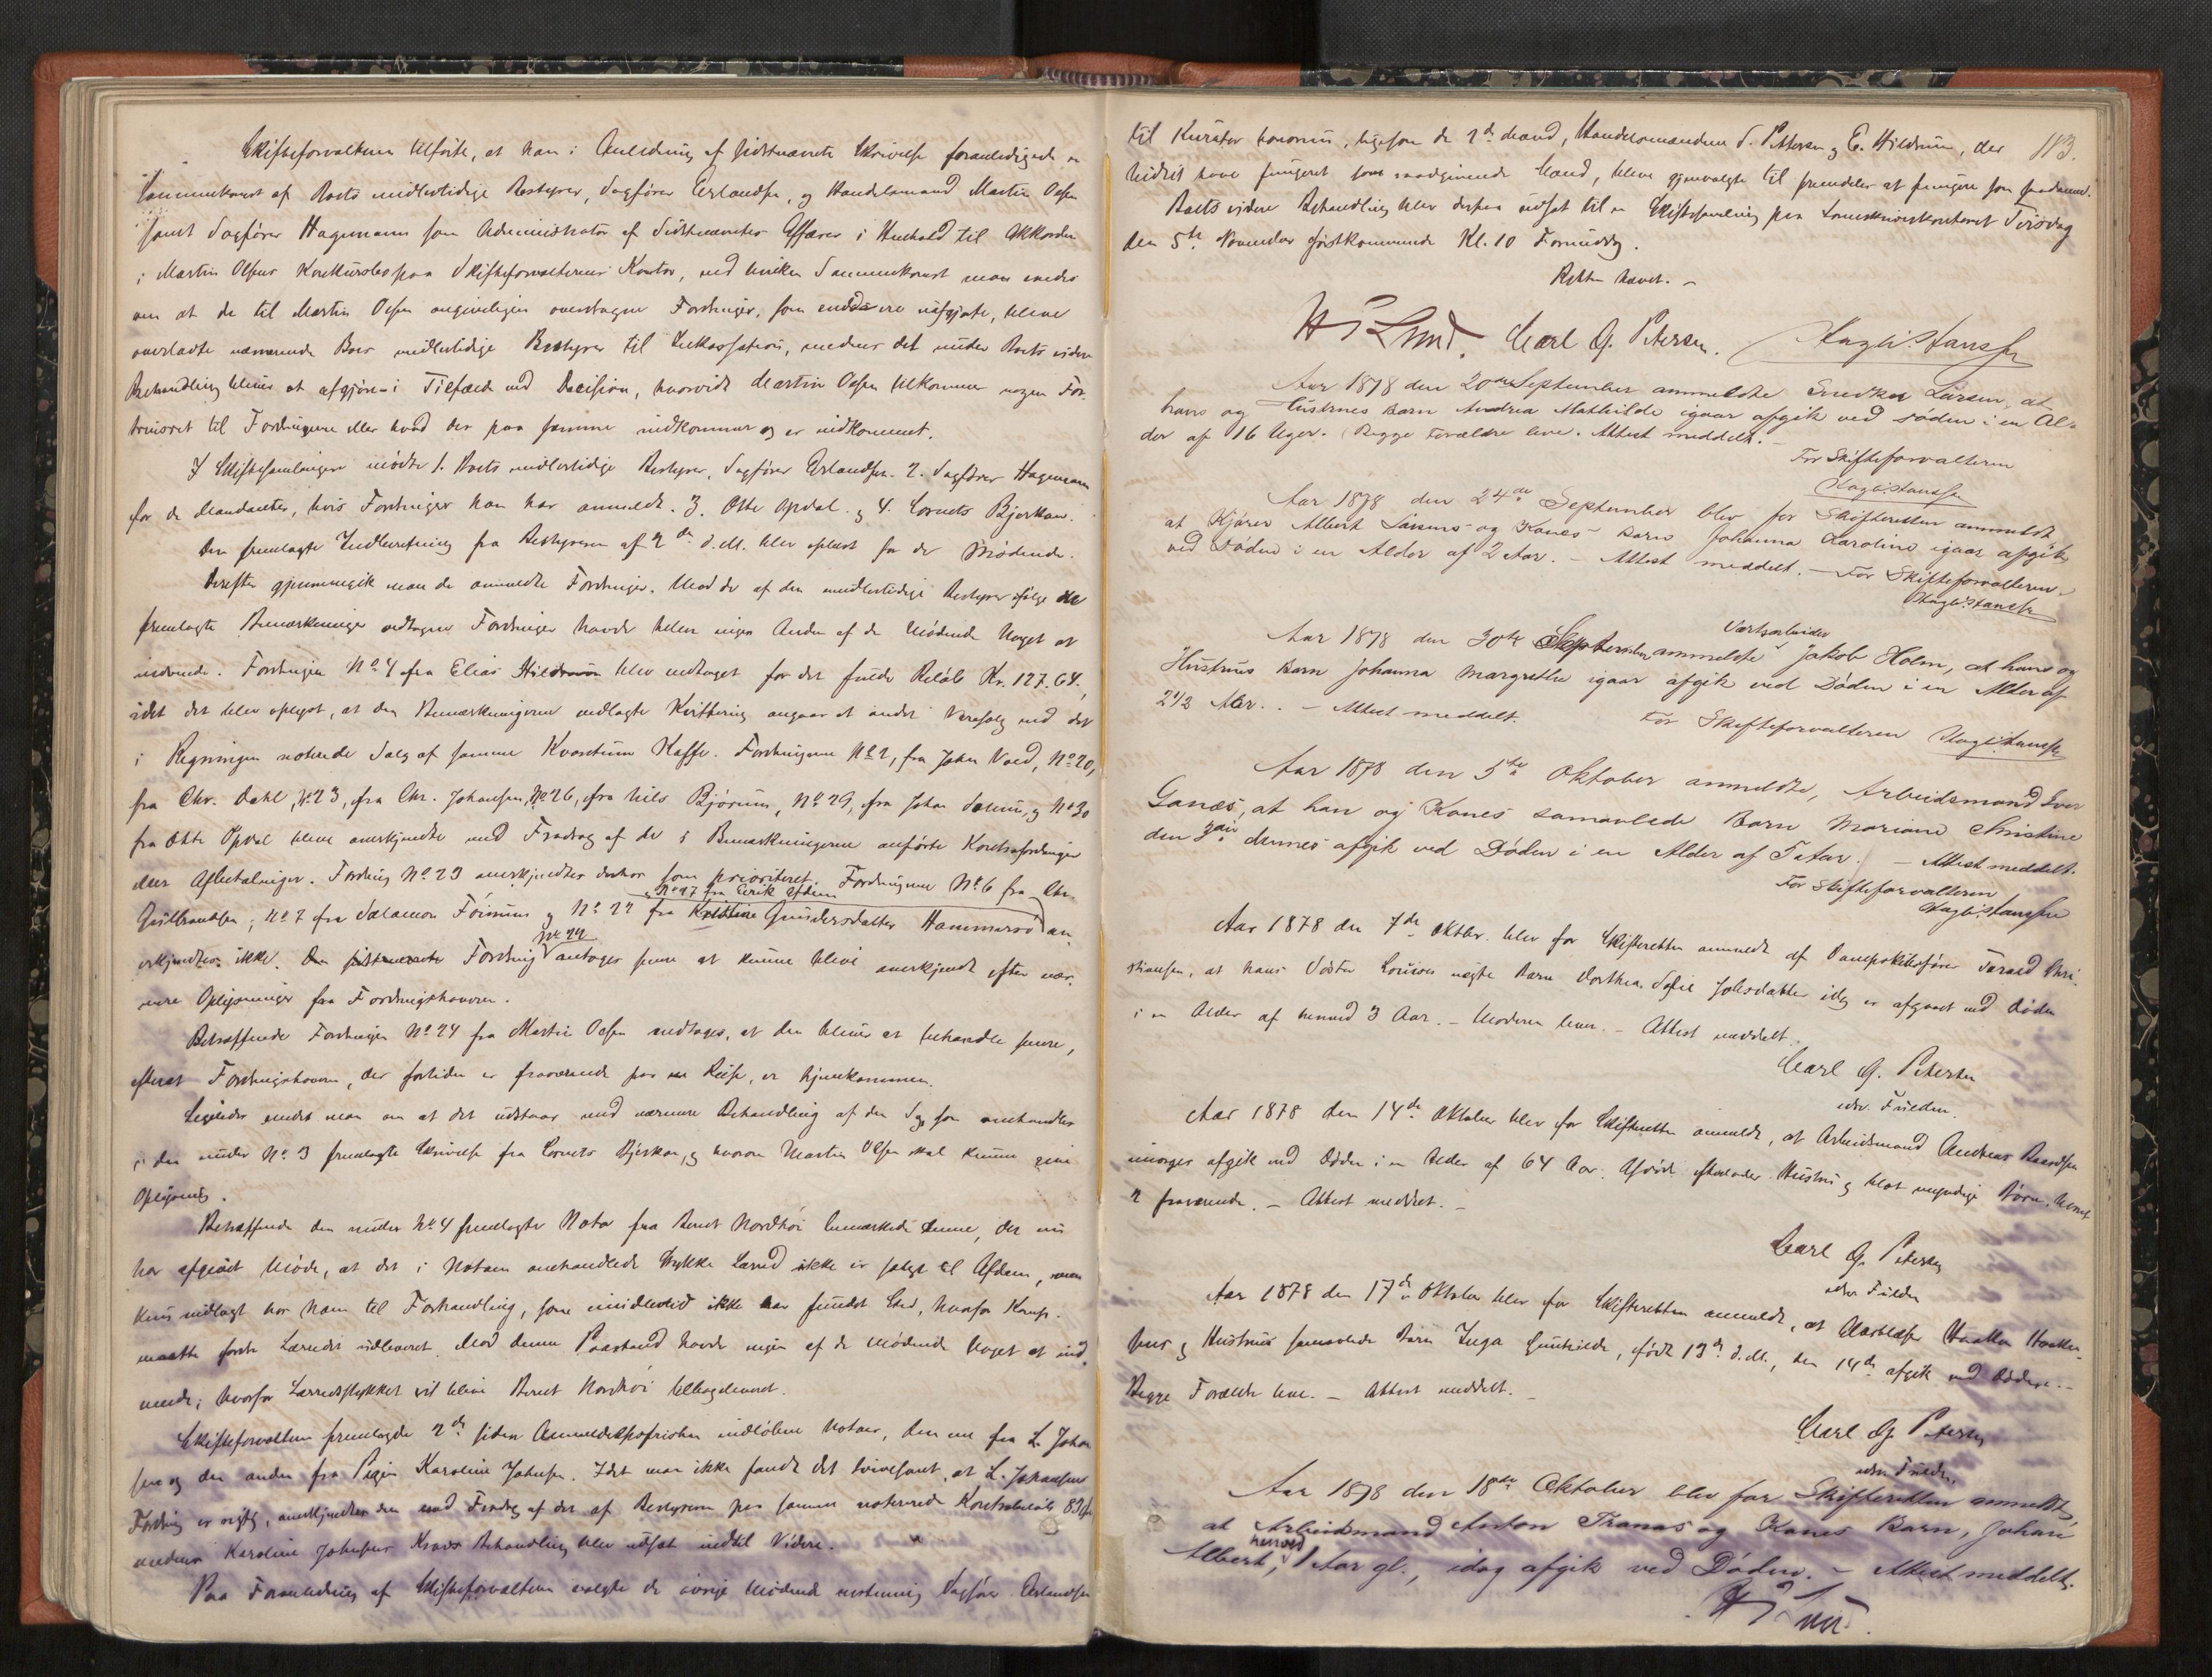 Skifteforvalteren tilførte, at han i Anledning af sidstnævnte Skrivelse foranledigede en
Sammenkomst af Boets midlertidige Bestyrer, Sagfører Erlandsen, og Handelsmand Martin Olsen
samt Sagfører Hagemann som Administrator af Sidstnævntes Affærer i Henhold til Akkorden
i Martin Olsens Konkursbo paa Skifteforvalterens Kontor, ved hvilken Sammenkomst man enedes
om at de til Martin Olsen angiveligen overdragne Fordringer, som endda ere uafgjorte, bleve
overladte nærværende Boes midlertidige Bestyrer til Inkassation, medens det under Boets videre
Behandling bliver at afgjøre i Tilfælde ved Decision, hvorvidt Martin Olsen tilkommer nogen For-
trinsret til Fordringerne eller hvad der paa samme indkommer og er indkommet.
I Skiftesamlingen mødte 1. Boets midlertidige Bestyrer, Sagfører Erlandsen. 2. Sagfører Hagemann
for de Mandanter, hvis Fordringer han har anmeldt. 3. Otte Opdal og 4. Cornets Bjerkan.
Den fremlagte Indberetning fra Bestyreren af 2den d. M. blev oplæst for de Mødende.
Derefter gjennemgik man de anmeldte Fordringer. Mod de af den midlertidige Bestyrer ifølge de
fremlagte Bemærkninger vedtagne Fordringer havde heller ingen Anden af de Mødende Noget at
indvende. Fordringen No. 4 fra Elias Hildrum blev vedtaget for det fulde Beløb Kr. 127.64.,
idet det blev oplyst, at den Bemærkningerne vedlagte Kvittering angaar et andet Varesalg end det
i Regningen noterede Salg af samme Kvantum Kaffe. Fordringerne No. 2, fra John Vold, No. 20,
fra Chr. Dahl, No. 23, fra Chr. Johansen, No. 26, fra Nils Bjørum, No. 29, fra Johan Solum, og No. 30
fra Otte Opdal bleve anerkjendte med Fradrag af de i Bemærkningerne anførte Kontrafordringer
eller Afbetalinger. Fordring No. 23 anerkjendtes derhos som prioriteret. Fordringerne No. 6 fra Chr.
No. 17 fra Eirik Ofdim
Gulbrandsen, No. 7 fra Salamon Føinum og No. 22 fra Kristine Gundersdatter Hammersø an-
No. 22
erkjendtes ikke. Den sidstnævnte Fordring antages senere at kunne blive anerkjendt efter nær-
mere Oplysninger fra Fordringshaveren.
Betræffende Fordringen No. 24 fra Martin Olsen vedtoges, at den bliver at behandle senere,
efterat Fordringshaveren, der fortiden er fraværende paa en Reise, er hjemkommen.
Ligeledes enedes man om at det udstaar med nærmere Behandling af den Sag, som omhandles
i den under No. 3 fremlagte Skrivelse fra Cornets Bjerkan, og hvorom Martin Olsen skal kunne give
Oplysning.
Betræffende den under No. 4 fremlagte Nota fra Bernt Nordhøi bemærkede denne, der nu
har afgivet Møde, at det i Notaen omhandlede Stykke Lærred ikke er solgt til Afdøde, men
kun indlagt hos ham til Forhandling, som imidlertid ikke har fundet Sted, hvorfor Komp.
maatte fordre Lærredet udleveret. Mod denne Paastand havde ingen af de Mødende Noget at ind-
vende, hvorfor Lærredsstykket vil blive Bernt Nordhøi tilbageleveret.
Skifteforvalteren fremlagde 2de siden Anmeldelsesfristen indløbne Notaer, den ene fra L. Johan-
sen og den anden fra Pigen Karoline Johnsen. Idet man ikke fandt det tvivlsomt, at L. Johansens
Fordring er rigtig, anerkjendtes den med Fradrag af det af Bestyreren paa samme noterede Kontrabeløb
medens Karoline Johnsens Kravs Behandling blev udsat indtil Videre.
Paa Foranledning af Skifteforvalteren valgte de øvrige Mødende enstemmig Sagfører Erlandsen
113.
til Kurator bonorum, ligesom de 2de Mænd, Handelsmændene S. Pettersen og E. Hildrum, der
hidtil have fungeret som raadgivende Mænd, bleve gjenvalgte til fremdeles at fungere som saadanne.
Boets videre Behandling blev derpaa udsat til en Skiftesamling paa Sorenskriverkontoret Tirsdag
den 5te November førstkommende Kl. 10 Formiddag.
Retten hævet. –
H P Lund. Carl G. Petersen. Hagb. Hanssen
Aar 1878 den 20de September anmeldte Snedker Larsen, at
hans og Hustrues Barn Andrea Mathilde igaar afgik ved Døden i en Al-
der af 16 Uger. Begge Forældre leve. Attest meddelt. –
For Skifteforvalteren
Hagb. Hanssen
Aar 1878 den 24de September blev for Skifteretten anmeldt
at Kjører Albert Larsens og Kones Barn Johanna Karoline igaar afgik
ved Døden i en Alder af 2 Aar. – Attest meddelt. – For Skifteforvalteren.
Hagb. Hanssen
Værftsarbeider
Aar 1878 den 30te September anmeldte Jakob Holm, at hans og
Hustrues Barn Johanna Margrethe igaar afgik ved Døden i en Alder af
2 1/2 Aar. – Attest meddelt. For Skifteforvalteren Hagb. Hanssen
Aar 1878 den 5te Oktober anmeldte, Arbeidsmand Iver
Ganæs, at han og Kones samavlede Barn Mariane Christine
den 3die dennes afgik ved Døden i en Alder af 5 Aar. – Attest meddelt.
For Skifteforvalteren
Hagb. Hanssen
Aar 1878 den 7de Oktbr. blev for Skifteretten anmeldt af Dampskibsfører Tarald Chri-
stiansen, at hans Søster Louises uægte Barn Dorthea Sofie Johsdatter idag er afgaaet ved Døden
i en Alder af henved 3 Aar. – Moderen lever. – Attest meddelt.
Carl G. Petersen
edsv. Fuldm.
Aar 1878 den 14de Oktober blev for Skifteretten anmeldt, at Arbeidsmand Andreas Baardsen
imorges afgik ved Døden i en Alder af 64 Aar. Afdøde efterlader Hustru og blot myndige Børn, hvoraf
2 fraværende. – Attest meddelt. –
Carl G. Petersen
edsv. Fuldm
Aar 1878 den 17de Oktober blev for Skifteretten anmeldt, at Haaken Haaken-
sens og Hustrues samavlede Barn Inga Gunhilde, født 13de d. M., den 14de afgik ved Døden. –
Begge Forældre leve. – Attest meddelt. –
Carl G. Petersen
edsv. Fuldm.
Aar 1878 den 18de Oktober blev for Skifteretten anmeldt,
at Arbeidsmand Anton Tranas og Kones Barn, Johan
henved
Albert, 1 Aar gl., idag afgik ved Døden. – Attest meddelt.
H P Lund.